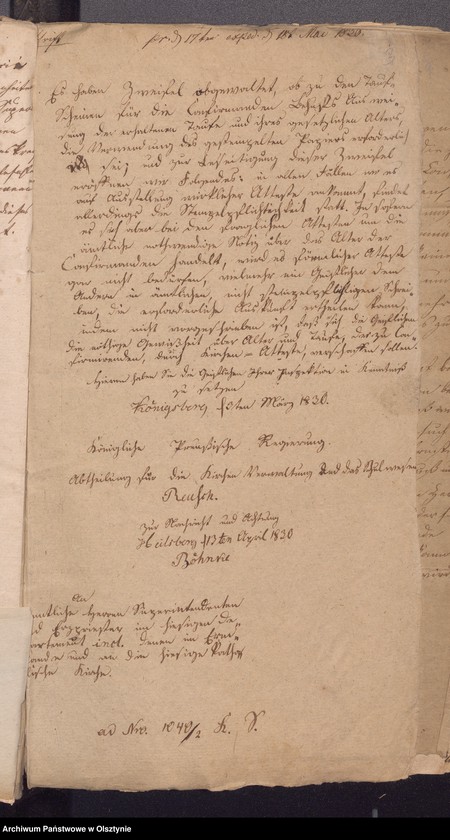 schrift
pr. d 17ten exped. d 18t Mai 1830.
Es haben Zweifel obgewaltet, ob zu den Tauf-
Scheinen für die Confirmanden Behufs Auswei-
sung der erhaltenen Taufe und ihres gesetzlichen Alters,
die Verwendung des gestempelten Papiers erforderlich
sei; und zur Beseitigung dieser Zweifel
eröffnen wir Folgendes: in allen Fällen wo es
auf Ausstellung wirklicher Atteste ankommt, findet
allerdings die Stempelpflichtigkeit statt. In sofern
es sich aber bei den fraglichen Attesten um die
amtliche nothwendige Notiz über das Alter der
Confirmanden handelt, wird es förmlicher Atteste
gar nicht bedürfen, vielmehr ein Geistlicher dem
Andern in amtlichen, nicht stempelpflichtigen Schrei-
ben, die erforderliche Auskunft ertheilen kann,
indem nicht vorgeschrieben ist, daß sich die Geistlichen
die nöthige Gewißheit über Alter und Taufe, des zu Con-
firmirenden, durch Kirchen-Atteste, verschaffen sollen.
Hievon haben Sie die Geistlichen Ihrer Inspektion in Kenntniß
zu setzen
Königsberg den März 1830.
Königliche Preußische Regierung.
Abtheilung für die Kirchen Verwaltung und das Schulwesen
Reusch.
Zur Nachricht und Achtung
Heilsberg d 13ten April 1830
An
sämmtliche Herren Superintendenten
und Erzpriester im hiesigen De-
partement incl. denen im Erm-
lande und an die hiesige Katho-
lische Kirche.
ad Nro. 1840/2 K. S.
Archiwum Państwowe w Olsztynie